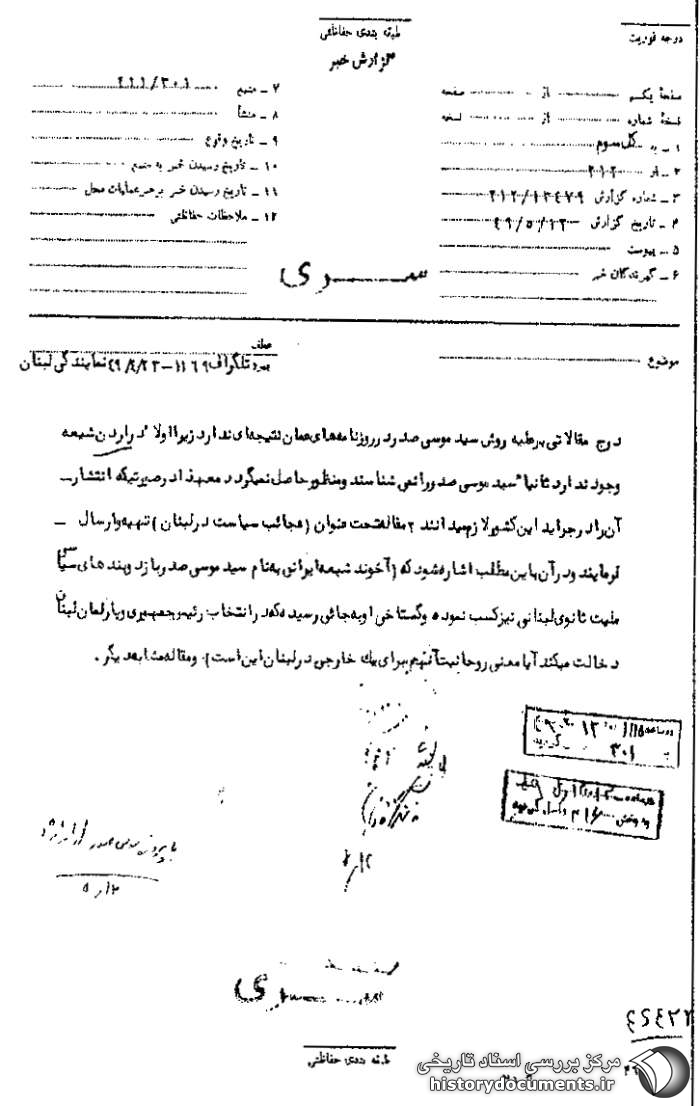 طبقه بندی حفاظتی
گزارش خبر
درجه فوریت
صفحهٔ یکم ........ از ........ صفحه
نسخهٔ شماره ........ از ........ نسخه
۱ ــ به کل سوم
۲ ــ از ۲۱۲
۳ ــ شماره گزارش ۲۱۲/۱۳۴۷۹
۴ ــ تاریخ گزارش ۴۹/۵/۱۲
۵ ــ پیوست
۶ ــ گیرندگان خبر
۷ ــ منبع
۸ ــ منشأ
۹ ــ تاریخ وقوع
۱۰ ــ تاریخ رسیدن خبر به منبع
۱۱ ــ تاریخ رسیدن خبر برهبر عملیات محل
۱۲ ــ ملاحظات حفاظتی
سری
موضوع
عطف
تلگراف ۱۱۶۹ــ۴۹/۴/۲۳ نمایندگی لبنان
درج مقالاتی برعلیه روش سید موسی صدر در روزنامه‌های عمان نتیجه‌ای ندارد زیرا اولا" دراردن شیعه
وجود ندارد ثانیا" سید موسی صدر رانمی شناسند ومنظور حاصل نمیگردد معهذا درصورتیکه انتشار ــ
آن رادر جراید این کشور لازم میدانند ۲ مقاله تحت عنوان (عجائب سیاست درلبنان) تهیه وارسال ــ
فرمایند ودر آن باین مطلب اشاره شود که (آخوند شیعه ایرانی به نام سید موسی صدر با زد وبند های سیاسی
ملیت ثانوی لبنانی نیز کسب نموده وگستاخی اوبه جائی رسیده که در انتخاب رئیس جمهوری وپارلمان لبنان
دخالت میکند آیا معنی روحانیت آنهم برای یك خارجی درلبنان این است). ومقاله مشابه دیگر.
۳۰۱
سری
طبقه بندی حفاظتی
مرکز بررسی اسناد تاریخی
historydocuments.ir